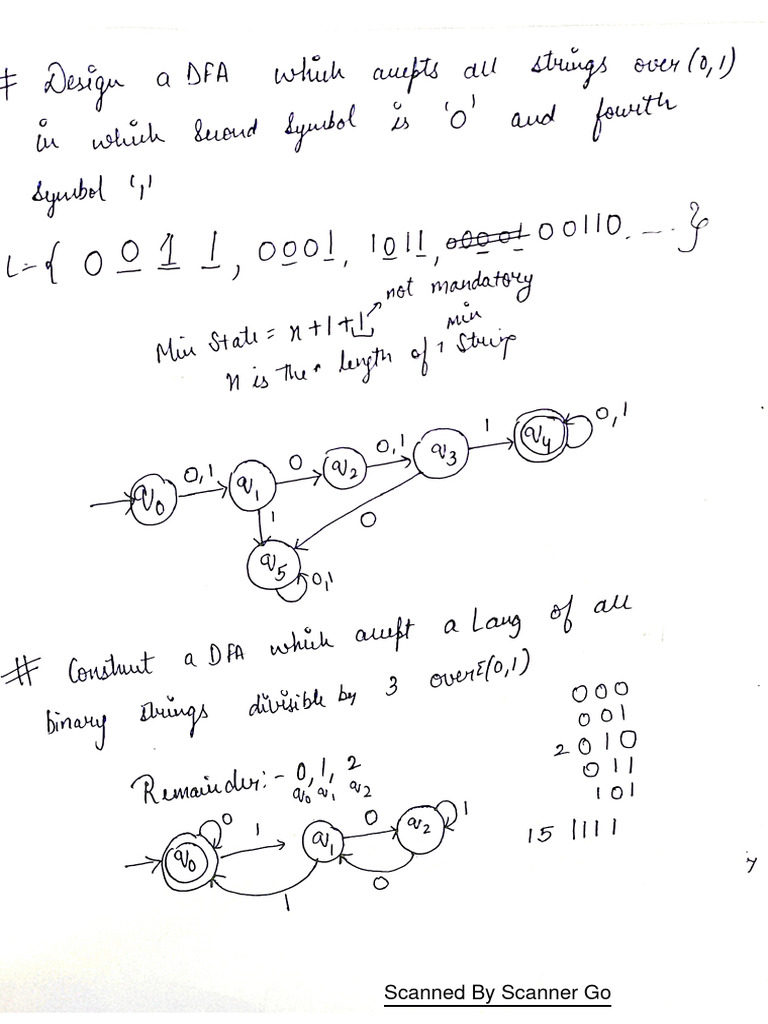 # Design a DFA which accepts all strings over (0,1)
in which second symbol is '0' and fourth
symbol '1'
L = { 0 0 1 1 , 0001, 1011, 00001 00110. ... }
not mandatory
Min State = n+1+1
min
n is the length of 1 String
q0 0,1 q1 0 q2 0,1 q3 1 q4 0,1
1 0
q5 0,1
# Construct a DFA which accept a Lang of all
binary strings divisible by 3 over Σ(0,1)
000
001
2 010
011
101
15 1111
Remainder:- 0, 1, 2
q0 q1 q2
q0 0 1 q1 0 q2 1
1 0
7
Scanned By Scanner Go